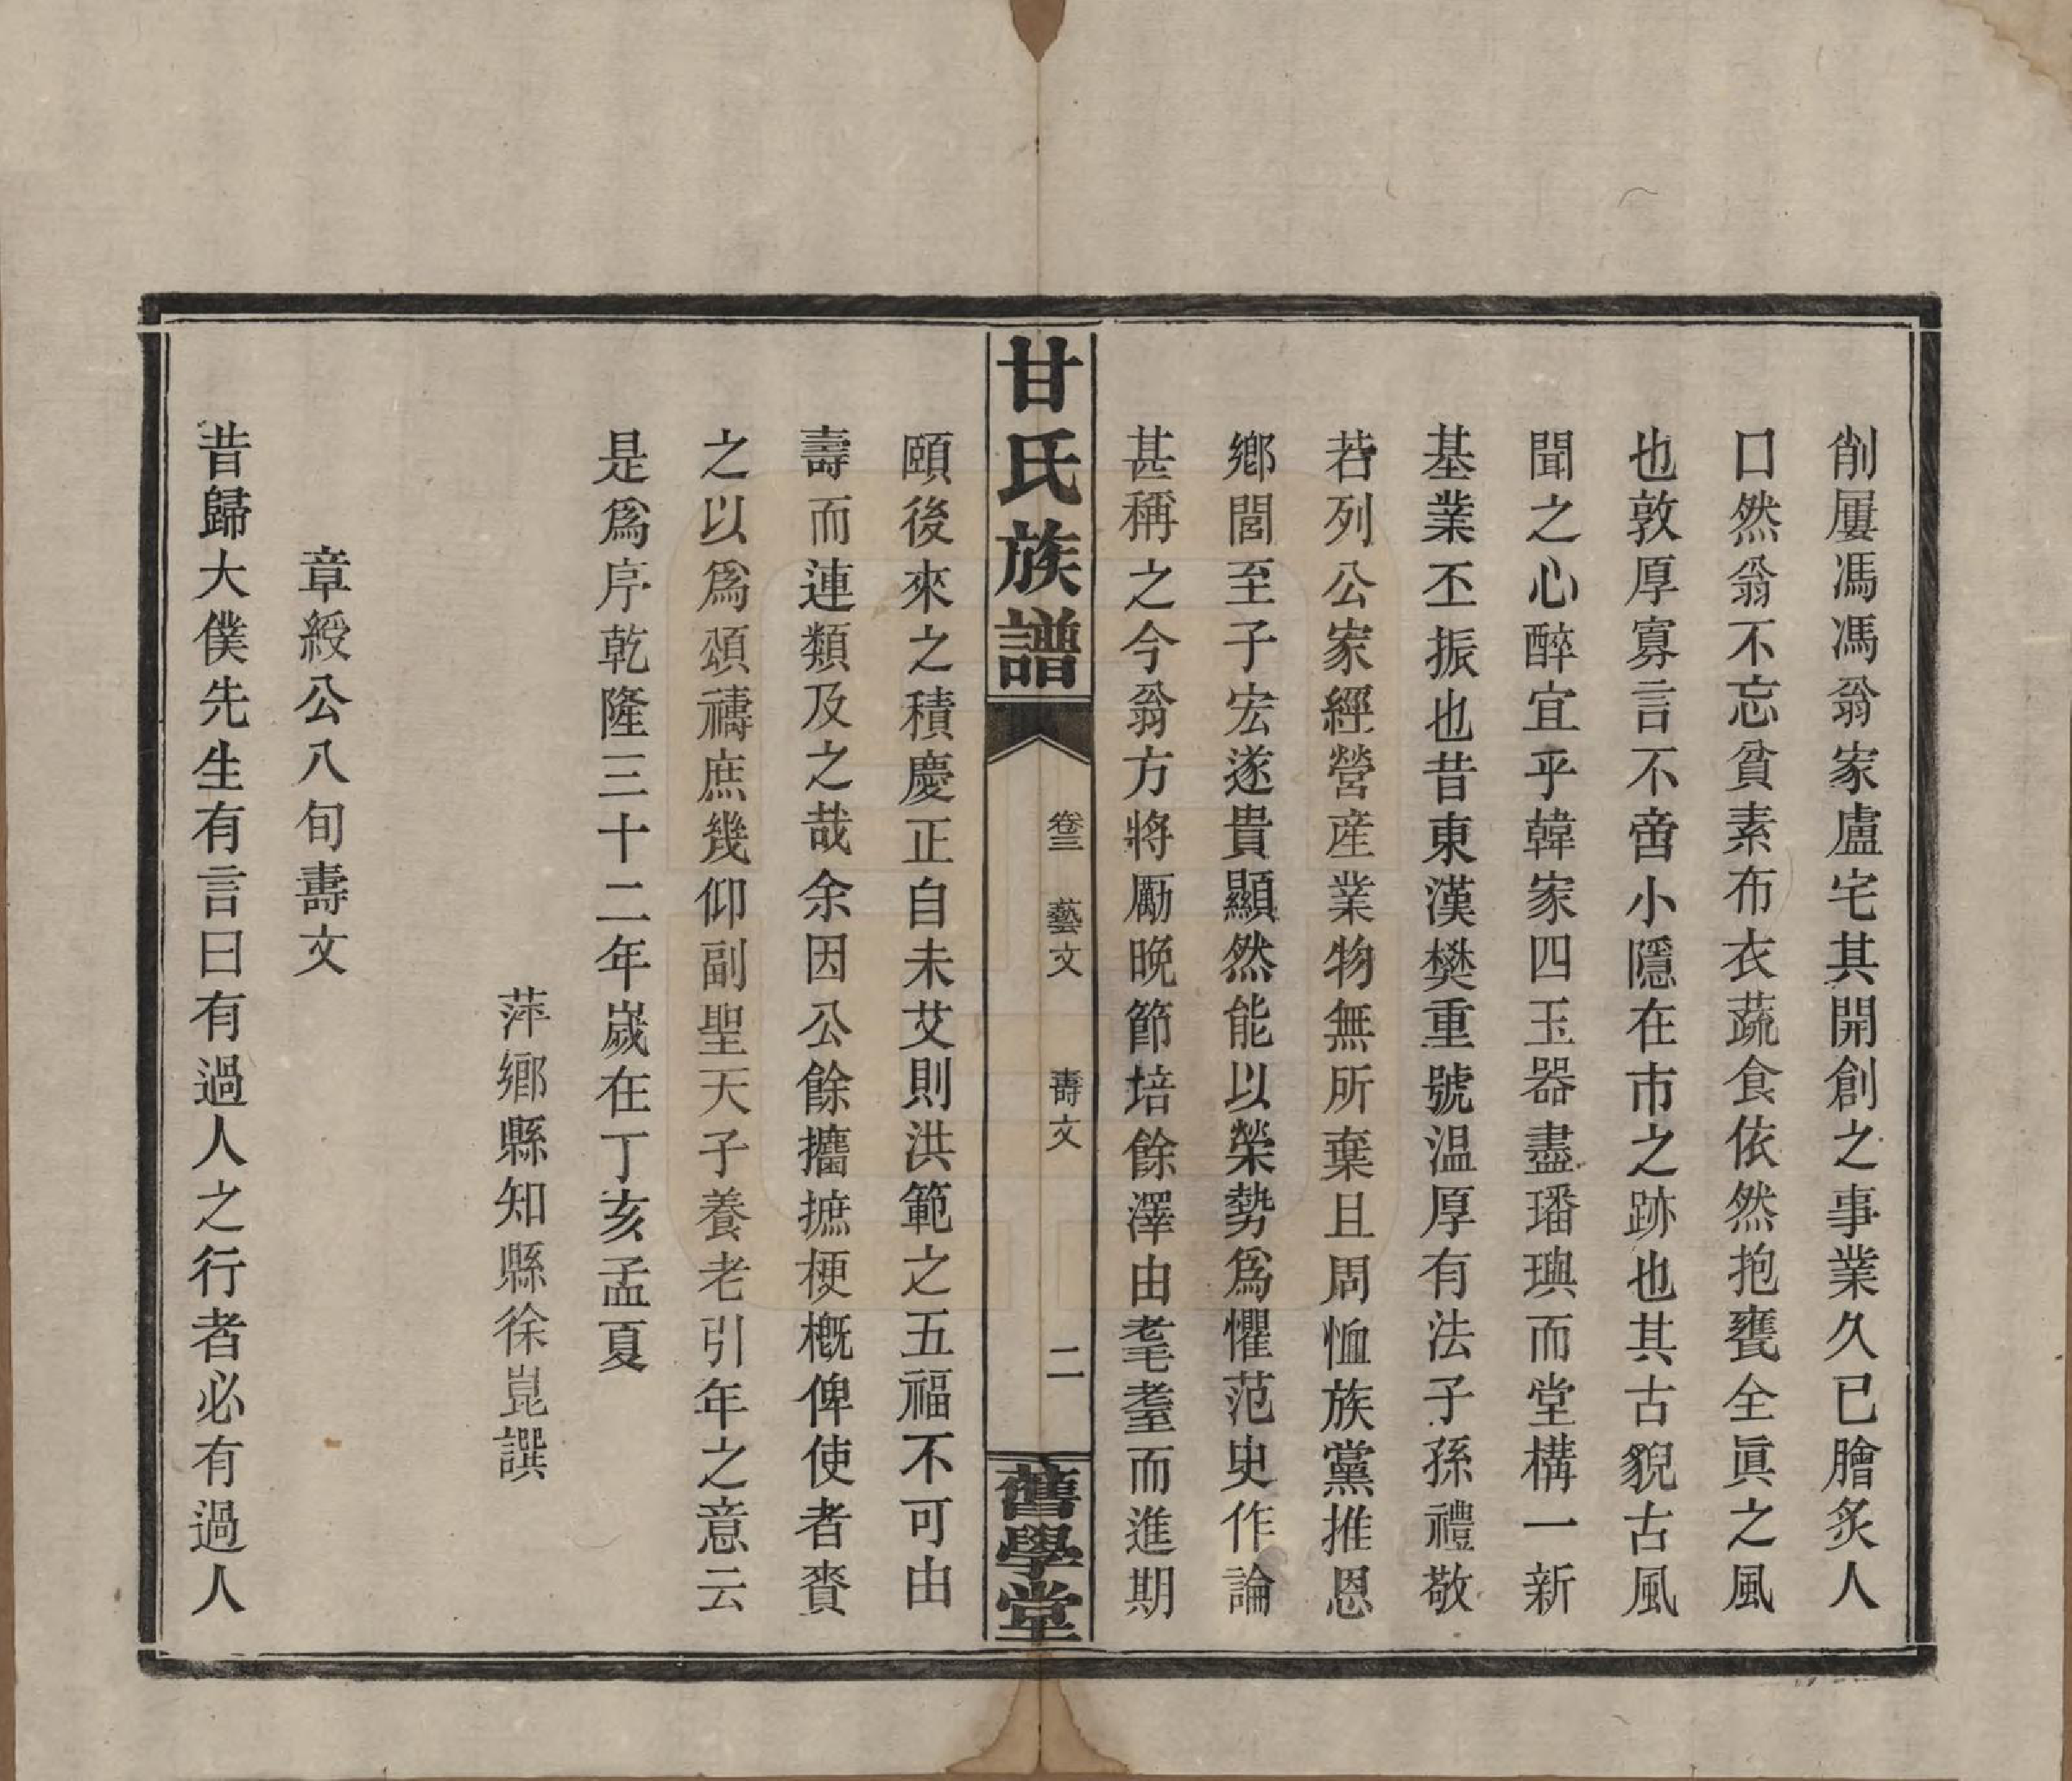 削屢馮馮翁家盧宅其開創之事業久已膾炙人
口然翁不忘貧素布衣蔬食依然抱甕全眞之風
也敦厚寡言不啻小隱在市之跡也其古貌古風
聞之心醉宜乎韓家四玉器盡璠璵而堂構一新
基業丕振也昔東漢樊重號温厚有法子孫禮敬
若列公家經營産業物無所棄且周恤族黨推恩
鄉閭至子宏遂貴顯然能以榮勢爲懼范史作論
甚稱之今翁方將勵晚節培餘澤由耄耋而進期
甘氏族譜
卷三 藝文 壽文 二
舊學堂
頤後來之積慶正自未艾則洪範之五福不可由
壽而連類及之哉余因公餘攟摭梗概俾使者賫
之以爲頌禱庶幾仰副聖天子養老引年之意云
是爲序乾隆三十二年歲在丁亥孟夏
萍鄉縣知縣徐崑譔
章綬公八旬壽文
昔歸大僕先生有言曰有過人之行者必有過人